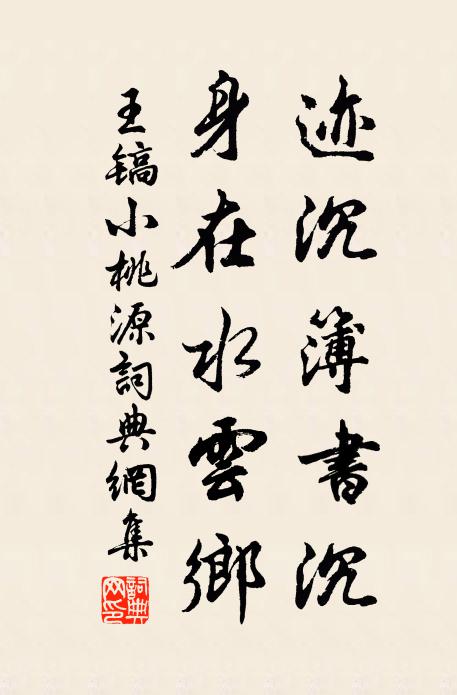 迹沉簿書沉
身在水雲鄉
王镐小桃源詞典網集
詞典網印